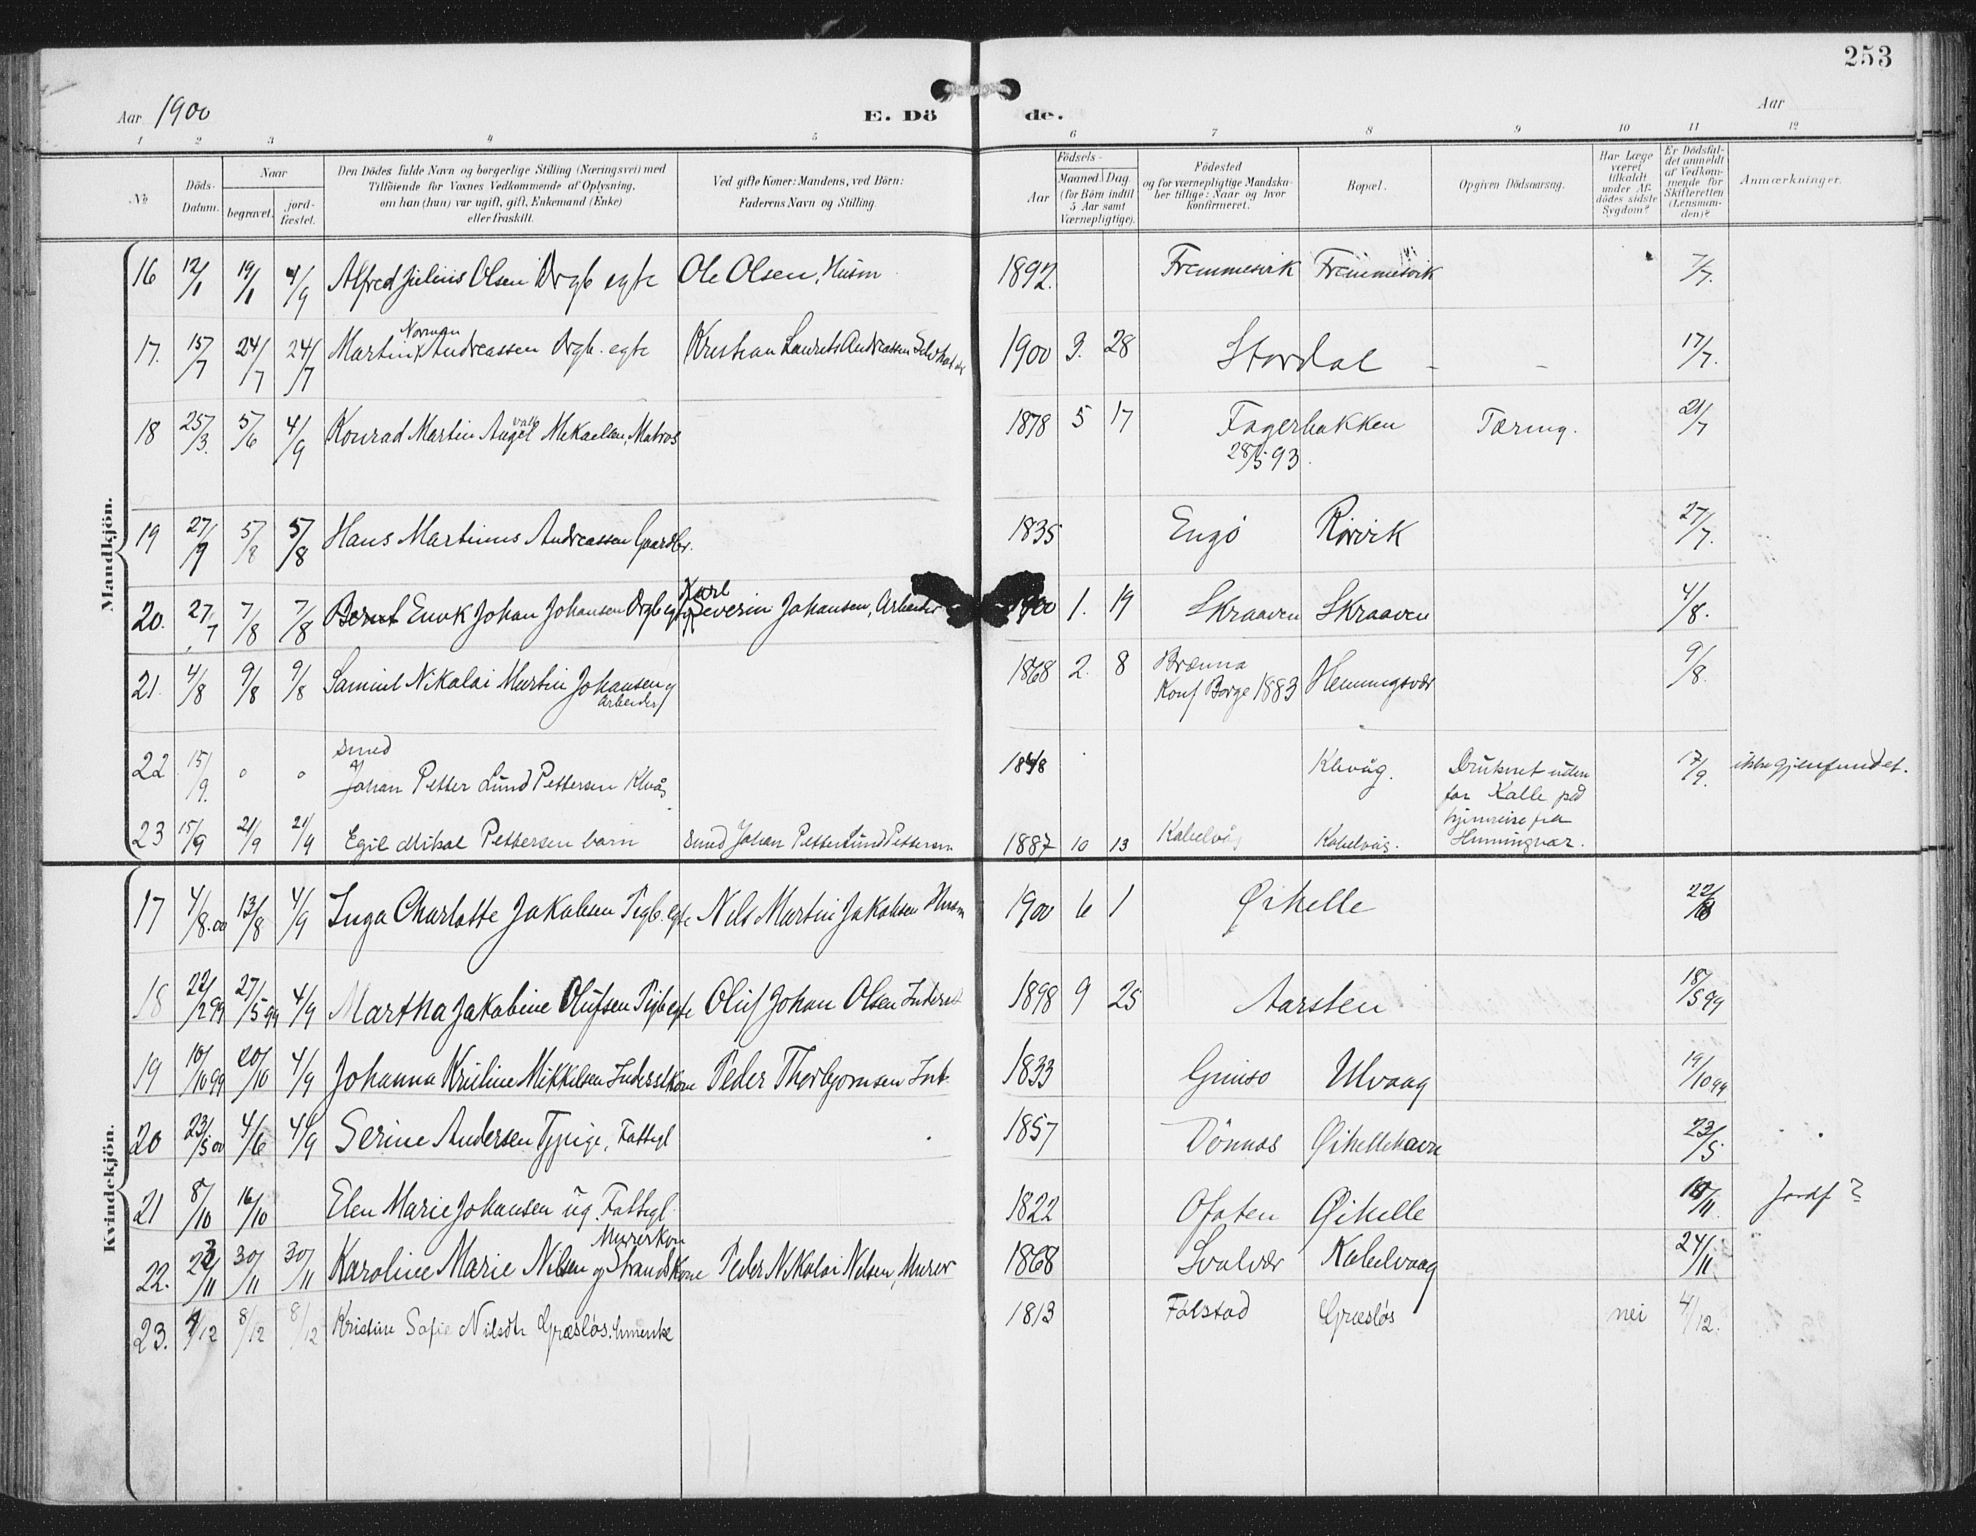 253
Aar 1900
E. Dö
de.
Aar
1 2 3 4 5 6 7 8 9 10 11 12
No
Döds-
Datum.
Naar
begravet.
jord-
fæstet.
Den Dödes fulde Navn og borgerlige Stilling (Næringsvei) med
Tilföiende for Voxnes Vedkommende af Oplysning,
om han (hun) var ugift, gift, Enkemand (Enke)
eller fraskilt.
Ved gifte Koner: Mandens, ved Börn:
Faderens Navn og Stilling
Aar
Födsels-
Maaned Dag
(for Börn indtil
5 Aar samt
Værnepligtige).
Födested
og for værnepligtige Mandska-
ber tillige: Naar og hvor
konfirmeret.
Bopæl.
Opgiven Dödsaarsag.
Har Læge
været
tilkaldt
under Af-
dödes sidste
Sygdom?
Er Dödsfal-
det anmeldt
af Vedkom-
mende for
Skifteretten
(Lensman-
den)?
Anmærkninger.
Mandkjön.
16 12/1 19/1 4/9 Alfred Julius Olsen Drgb egte Ole Olsen, Husm 1892. Fremmesvik Fremmesvik 7/7.
Norman
17. 15/7 24/7 24/7 Martin Andreassen Drgb. egte Kristian Laurits Andreassen 1900 3. 28 Stordal - - 17/7.
18 25/3. 5/6 4/9 Konrad Martin Angel Mikaelsen, Matros 1878 5 17 Fagerbakken Tæring. 21/7
28/5 93.
19 27/7 5/8 5/8 Hans Martinus Andreassen Gaardbr. 1835 Engö Rörvik 27/7.
Karl
20. 27/7 7/8 7/8 Bernt Johan Johansen Drgb egte Severin Johansen, Arbeider 1900 1. 19 Skraaven Skraaven 4/8.
21. 4/8 9/8 9/8 Samuel Nikolai Martin Johansen g 1868 2. 8 Brænna Hemmingsvær 9/8.
Arbeider
Konf Borge 1883
smed
22 15/9. o o Johan Petter Lund Pettersen Klvåg 1848 Klvåg. Druknet uden 17/9. ikke gjenfundet.
for Kalle på
hjemreise fra
Henningvær.
23 15/9 21/9 21/9 Egil Mikal Pettersen barn smed Johan Petter Lund Pettersen 1887 10 13 Kabelvåg Kabelvåg.
Kvindekjön.
17 4/8.00 13/8 4/9 Inga Charlotte Jakobsen Pigb. egte Nils Martin Jakobsen Husm 1900 6 1 Ørhelle 22/8
18 22/2 99 27/5 99 4/9 Martha Jakobine Olufsen Pigb egte Oluf Johan Olsen Inderst 1898 9 25 Aarsten 18/5 99
19 10/10 99 20/10 4/9 Johanna Kristine Mikkelsen Inderstkone Peder Thorbjornsen Ind. 1833 Gimso Ulvaag 19/10 99
20 23/5 00 4/6 4/9 Serine Andersen Tjpige, Fattigl 1857 Dönnas Ørhellehavn 23/5
21 8/10 16/10 Elen Marie Johansen ug. Fattigl. 1822 Ofoten Ørhelle /11. Jordf?
Murerkon
22. 22/11 30/11 30/11 Karoline Marie Nilsen g Strandkone Peder Nikolai Nilsen, Murer 1868 Svolvær Kabelvaag 24/11.
23. 4/12 8/12 8/12 Kristine Sofie Nilsdtr Græsløs. 1813 Falstad Græsløs nei 4/12.